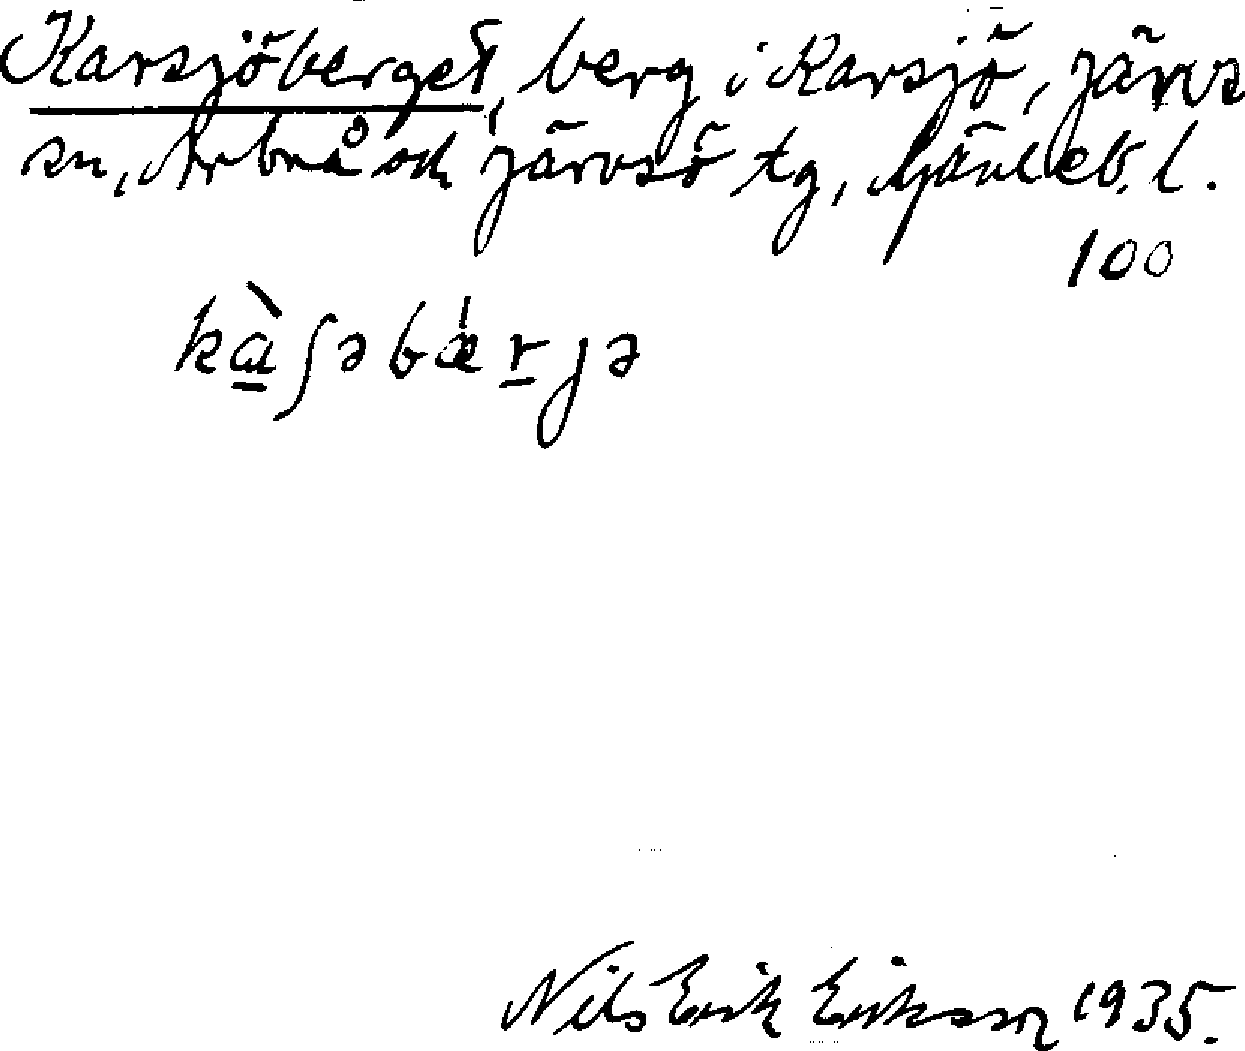 Karsjöberget, berg i Karsjö, Järvs
sn, Arbrå och Järvsö tg, Gävleb. l.
100
kὰʃəbǽrjə
Nils Erik Eriksson 1935.